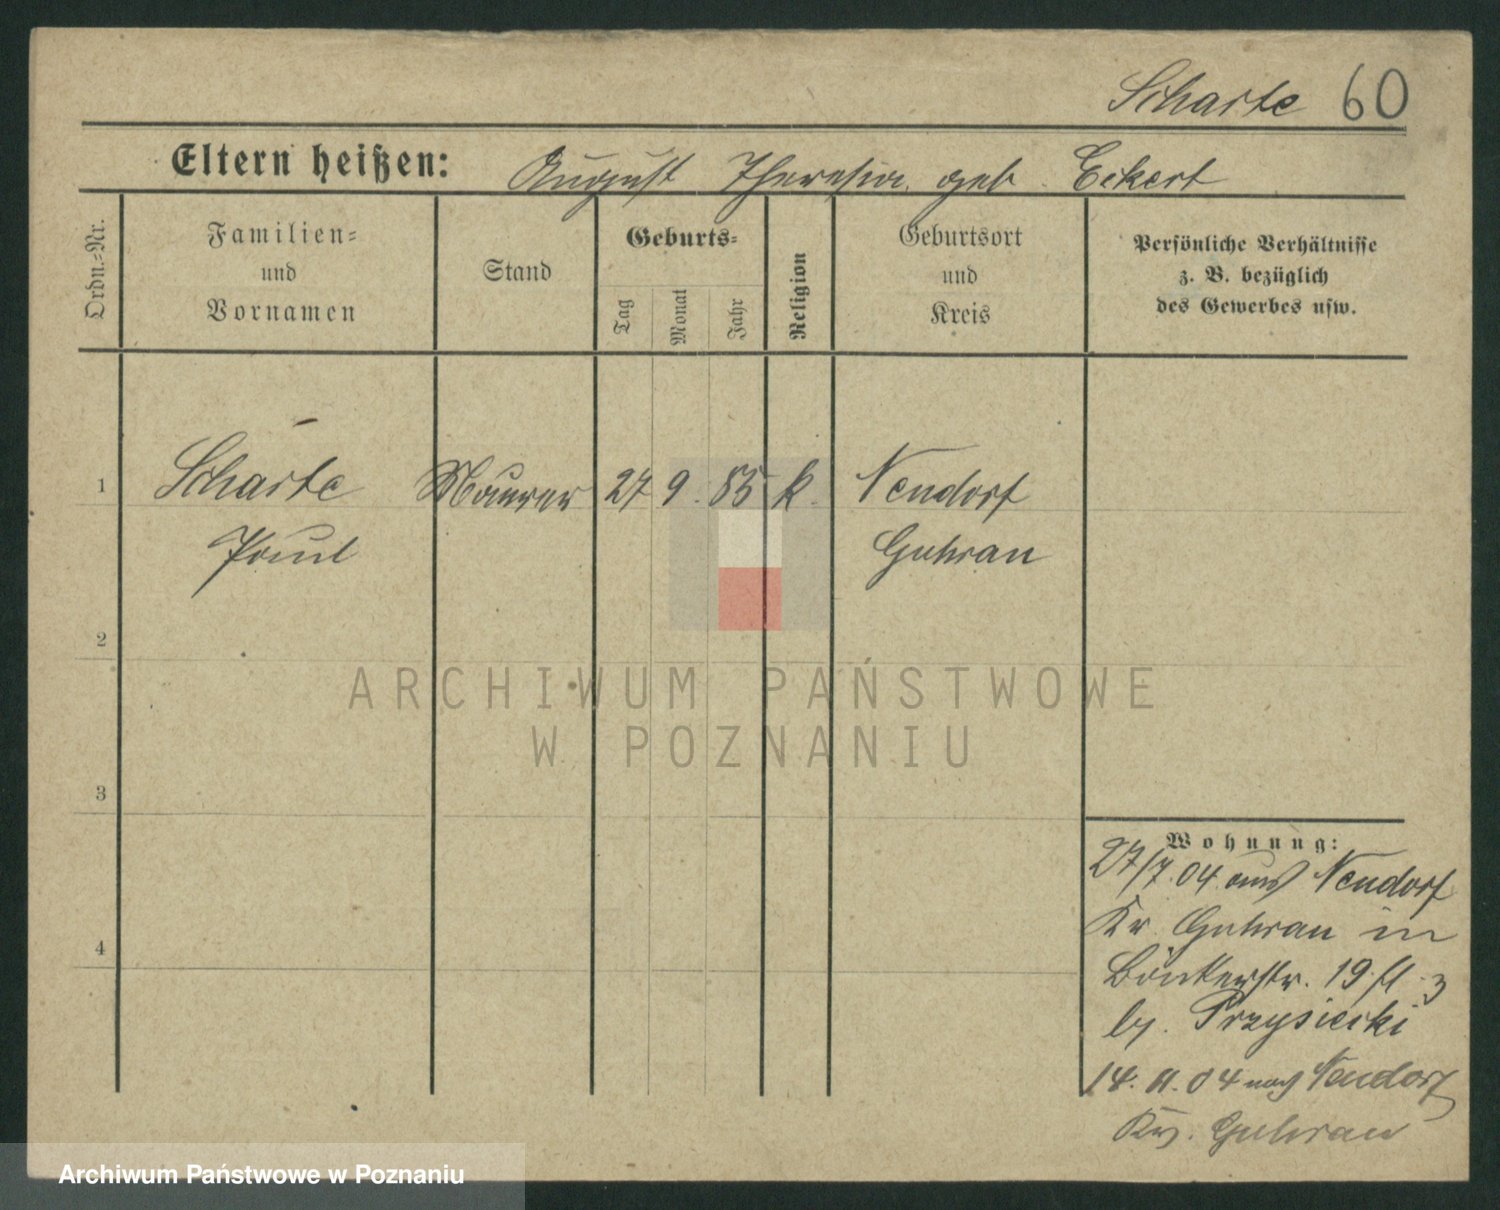 Scharte 60
Eltern heißen: August Theresia geb. Eckert
Ordn.-Nr.
Familien-
und
Vornamen
Stand
Geburts-
Tag
Monat
Jahr
Religion
Geburtsort
und
Kreis
Persönliche Verhältnisse
z. B. bezüglich
des Gewerbes usw.
1 Scharte Maurer 27 9. 85 k. Neudorf
Paul Guhrau
2
3
4
Wohnung:
27/7.04 aus Neudorf
Kr Guhrau in
19 3
bj. Przysiecki
14. 04 nach Neudorf
Kr. Guhrau
ARCHIWUM PAŃSTWOWE
W POZNANIU
Archiwum Państwowe w Poznaniu